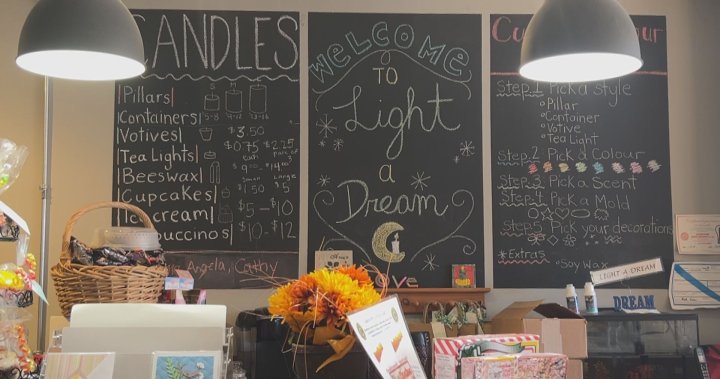 CANDLES
Pillars
Containers
Votives
Tea Lights
Beeswax
Cupcakes
Ice cream
S M L
$3.50
$0.75 each
$2.25
$1.50
$5
$5 - $10
$10 - $12
Angela, Cathy
Welcome
TO
Light
a
Dream
Step 1 Pick a style
Pillar
Container
Votive
Tea Light
Step 2 Pick a Colour
Step 3 Pick a Scent
Step 4 Pick a Mold
Step 5 Pick your decorations
*Extras
Soy Wax
LIGHT A DREAM
DREAM